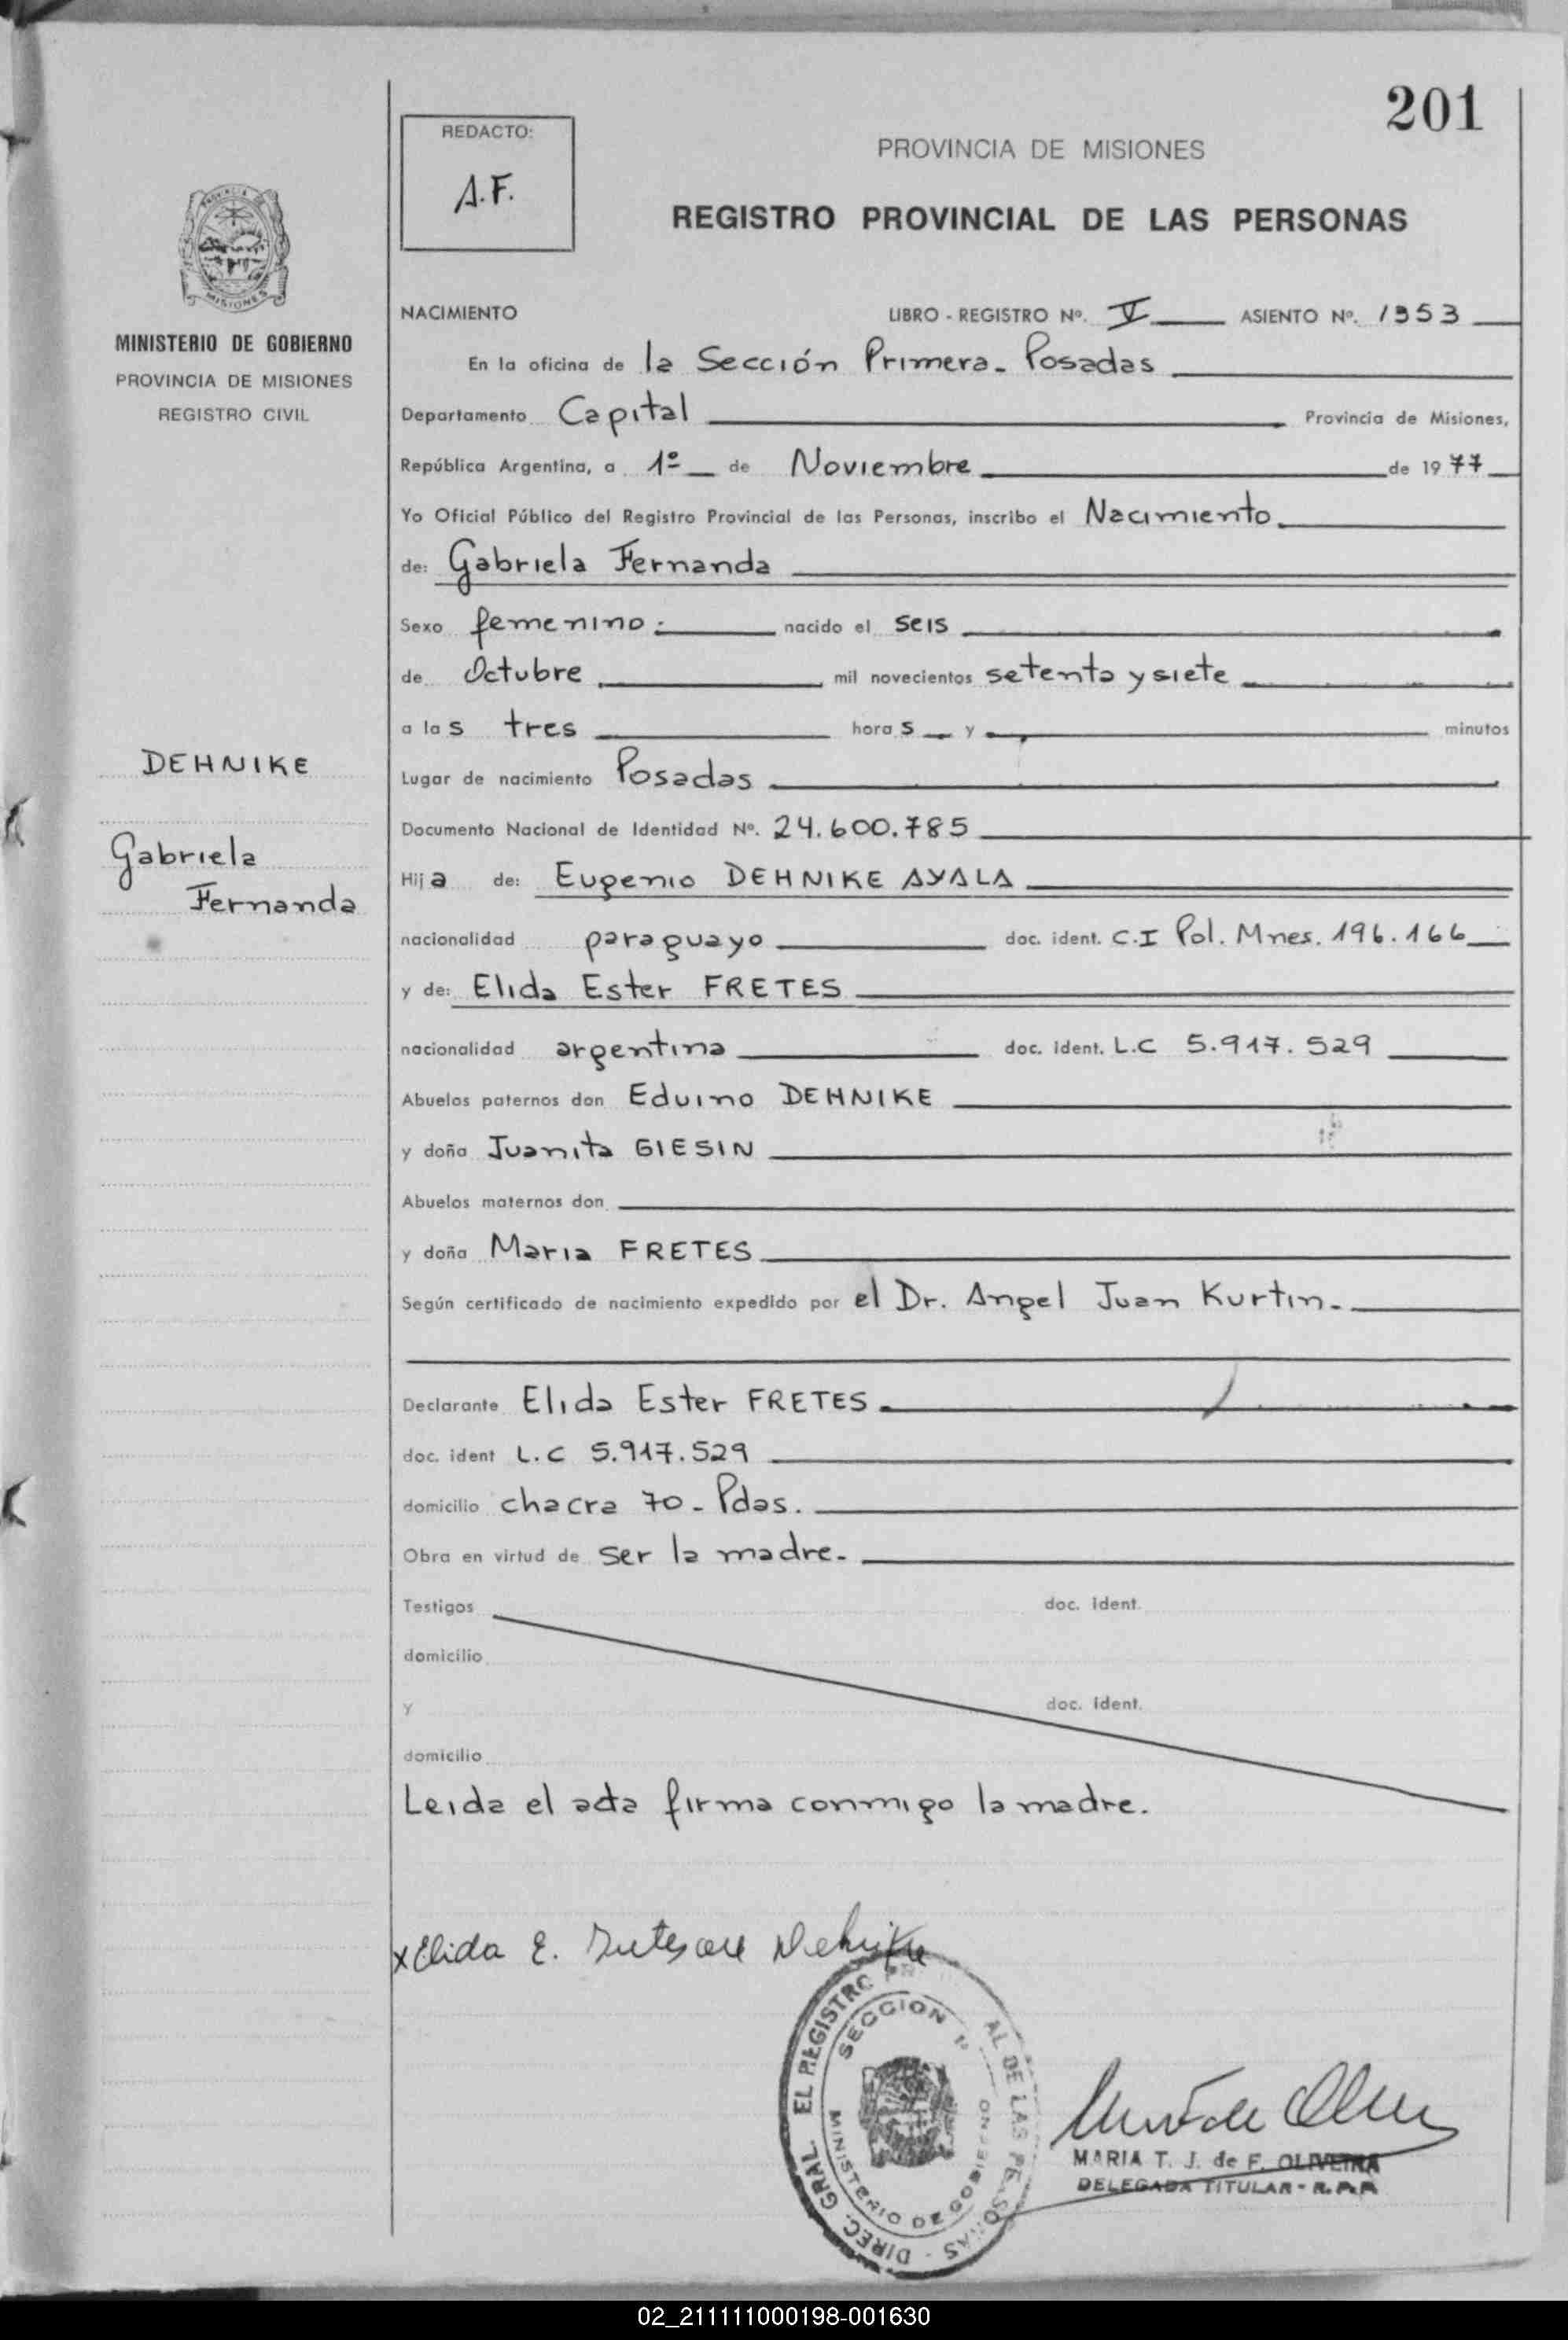 201
REDACTO:
A.F.
PROVINCIA DE MISIONES
REGISTRO PROVINCIAL DE LAS PERSONAS
MISIONES
MINISTERIO DE GOBIERNO
PROVINCIA DE MISIONES
REGISTRO CIVIL
NACIMIENTO LIBRO - REGISTRO Nº. V ASIENTO Nº. 1353
En la oficina de la Sección Primera - Posadas
Departamento Capital Provincia de Misiones,
República Argentina, a 1º de Noviembre de 1977
Yo Oficial Público del Registro Provincial de las Personas, inscribo el Nacimiento
de: Gabriela Fernanda
Sexo femenino: nacido el seis
de Octubre mil novecientos setenta y siete
a las tres horas y minutos
DEHNIKE
Gabriela
Fernanda
Lugar de nacimiento Posadas
Documento Nacional de Identidad Nº. 24.600.785
Hija de: Eugenio DEHNIKE AYALA
nacionalidad paraguayo doc. ident. C.I Pol. Mnes. 196.166
y de: Elida Ester FRETES
nacionalidad argentina doc. ident. L.C 5.917.529
Abuelos paternos don Eduino DEHNIKE
y doña Juanita GIESIN
Abuelos maternos don
y doña Maria FRETES
Según certificado de nacimiento expedido por el Dr. Angel Juan Kurtin.
Declarante Elida Ester FRETES
doc. ident L.C 5.917.529
domicilio chacra 70 - Pdas.
Obra en virtud de ser la madre.
Testigos doc. ident.
domicilio
y doc. ident.
domicilio
Leida el acta firma conmigo la madre.
x Elida E. Dehnike
DIREC. GRAL. EL REGISTRO AL DE LAS
SECCION 1ª
MINISTERIO DE GOBIERNO
MARIA T. J. de F. OLIVEIRA
DELEGADA TITULAR - R.P.P
02_211111000198-001630